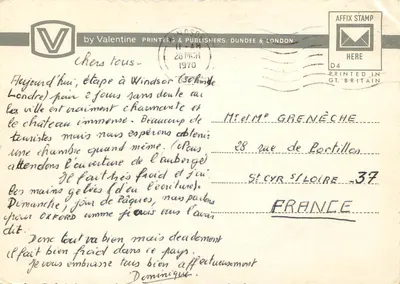 V by Valentine PRINTERS & PUBLISHERS, DUNDEE & LONDON
11-AM
28 MCH
1970
AFFIX STAMP
HERE
D4
PRINTED IN
GT. BRITAIN
Chers tous -
Aujourd'hui, étape à Windsor (
Londre) pour 2 jours sans doute car
la ville est vraiment charmante et
le château immense. Beaucoup de
touristes mais nous espérons obtenir
une chambre quand même. (Nous
attendons l'ouverture de l'auberge)
Je fait très froid et j'ai
les mains gelées (d'où l'écriture).
Dimanche, jour de Pâques, nous partons
pour OXFORD comme je vous l'avais
dit.
Donc tout va bien mais décidément
il fait bien froid dans ce pays.
Je vous embrasse tous bien affectueusement
Dominique.
Mr et Mme GRENÈCHE
28 rue de Portillon
St CYR S/LOIRE - 37
FRANCE